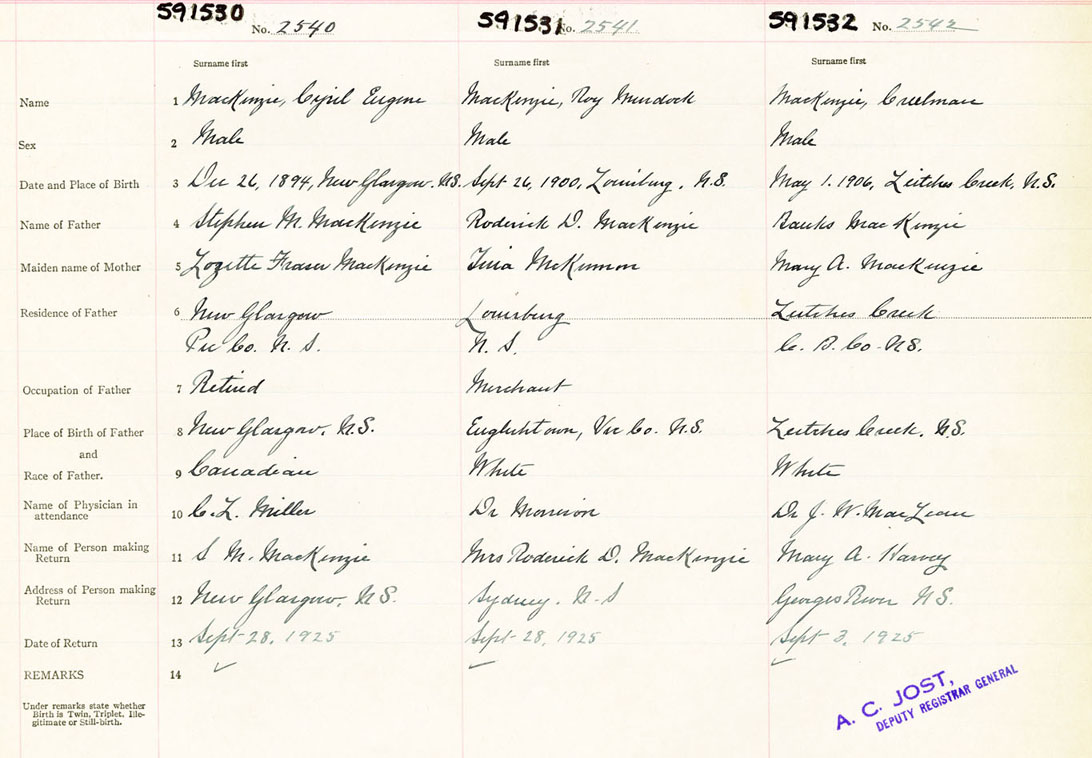 591530 No. 2540 591531 No. 2541 591532 No. 2542
Surname first Surname first Surname first
Name 1 MacKenzie, Cyril Eugene MacKenzie, Roy Murdock MacKenzie, Creelman
Sex 2 Male Male Male
Date and Place of Birth 3 Dec 26, 1894, New Glasgow. N.S. Sept 26, 1900, Louisburg, N.S. May 1. 1906, Leitches Creek, N.S.
Name of Father 4 Stephen M. MacKenzie Roderick D. MacKenzie Banks MacKenzie
Maiden name of Mother 5 Lozette Fraser MacKenzie Tina McKinnon Mary A. MacKenzie
Residence of Father 6 New Glasgow Louisburg Leitches Creek
Pic Co. N. S. N. S. C. B. Co. N.S.
Occupation of Father 7 Retired Merchant
Place of Birth of Father 8 New Glasgow, N.S. Englishtown, Vic Co. N.S. Leitches Creek, N.S.
and
Race of Father. 9 Canadian White White
Name of Physician in
attendance 10 C. L. Miller Dr Morrison Dr J. W. MacLean
Name of Person making
Return 11 S M. MacKenzie Mrs Roderick D. MacKenzie Mary A. Harvey
Address of Person making
Return 12 New Glasgow, N.S. Sydney. N-S Georges River N.S.
Date of Return 13 Sept-28, 1925 Sept-28, 1925 Sept 3, 1925
REMARKS 14
Under remarks state whether
Birth is Twin, Triplet, Ille-
gitimate or Still-birth.
A. C. JOST,
DEPUTY REGISTRAR GENERAL